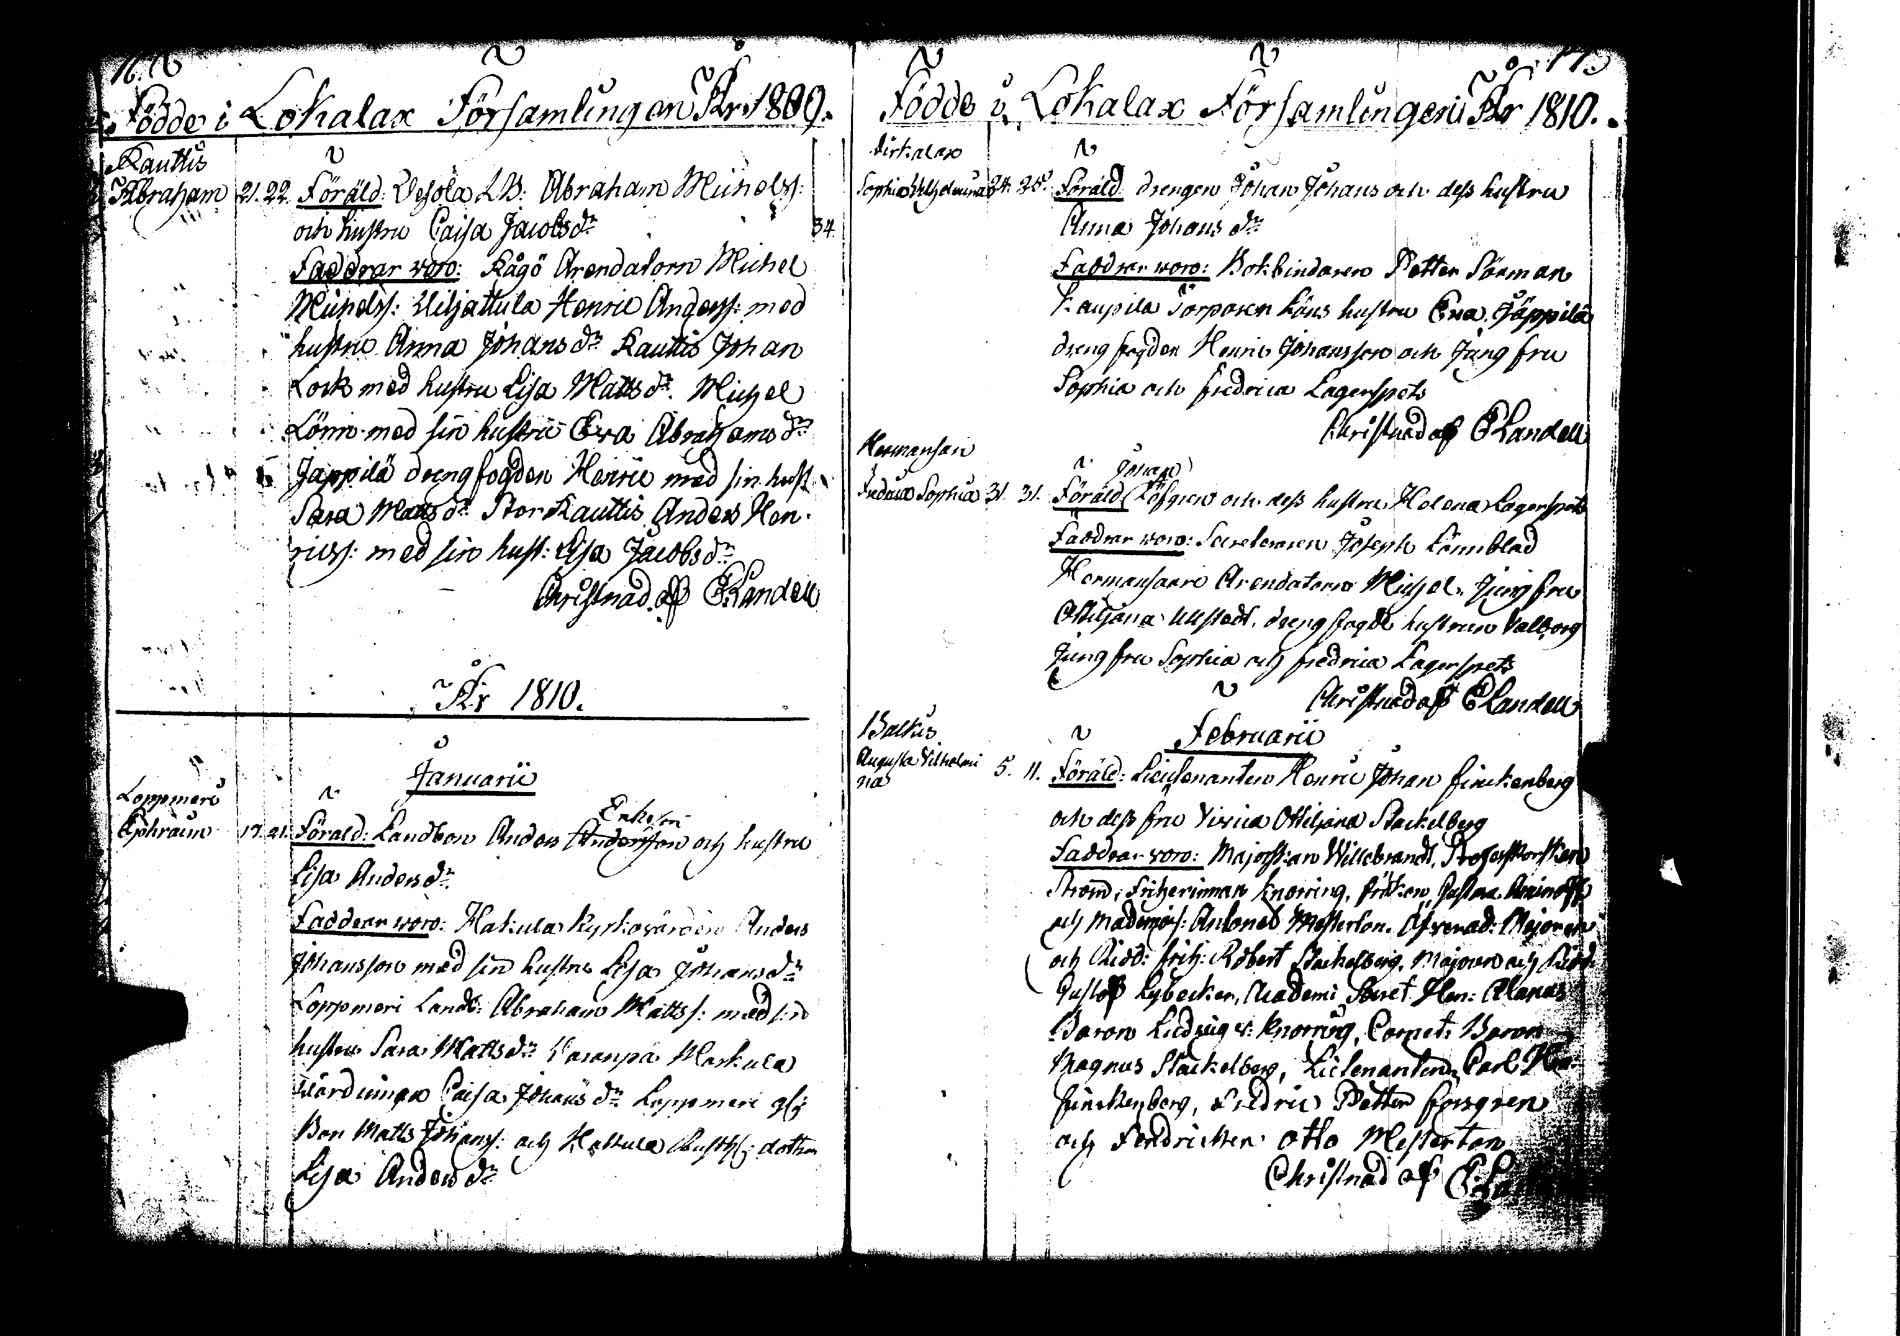 16.
Födde i Lokalax Församlingen År 1809.
Kauttis
Abraham 21. 22. Föräld: Vesola LB: Abraham Michelss:
och hustru Caisa Jacobs dr
34
Faddrar woro: Kågö Arendatorn Michel
Michelss: Viljattula Henric Anderss: med
hustru Anna Johans dr Kauttis Johan
Lock med hustru Lisa Matts dr. Michel
Lönn med sin hustru Eva Abrahams dr
Jäppilä drengfogden Henric med sin hust
Sara Matts dr Stor Kauttis Anders Hen-
ricss: med sin hust: Lisa Jacobs dr
Christnad af E Landell
År 1810.
Januarii
Loppmeri
Ephraim 17. 21. Föräld: Landbon Anders Andersson Erikson och hustru
Lisa Anders dr
Faddrar woro: Hakula Kyrkovärden Anders
Johansson med sin hustru Lisa Johans dr
Loppmeri Landb: Abraham Matts s: med sin
hustru Sara Matts dr Varanpä Markula
värdinnan Caisa Johans dr Loppmeri
Bon Matts Johanss: och Hakula Rusth: dotter
Lisa Anders dr
17.
Födde i Lokalax Församlingen År 1810.
Sophia Vilhelmina 24. 25. Föräld: drengen Johan Johans och dess hustru
Anna Johans dr
Faddrar woro: Bokbindaren Petter Sörman
Kaupila Torparen Löns hustru Eva. Jäppilä
dreng fogden Henric Johansson och Jungfru
Sophia och fredrica Lagerspets
Christnad af E Landell
Hermansari
Fredrica Sophia 31. 31. Föräld: Johan Löfgren och dess hustru Helena Lagerspets
Faddrar woro: Secreteraren Joseph Lönnblad
Hermansaari Arendatorn Michel. Jungfru
Ottiljana Ullstadt, drengfogde hustrun Valborg
Jungfru Sophia och fredrica Lagerspets
Christnad af E Landell
Februarii
Balkis
Augusta Vilhelmi
na 5. 11. Föräld: Lieutenanten Henric Johan finckenberg
och dess fru Virica Ottiljana Stackelberg
Faddrar woro: Majorskan Willebrandt, Professorskan
Ström, Friherinnan Knorring, fröken Gustava Aminoff
och Mademois: Antonet Mesterton. Öfverad: Majoren
och Ridd: frih: Robert Stackelberg, Majoren och Ridd:
Gustaf Lybecker, Academi Secret. Hen: Alanus
Baron Ludvig v: Knorring, Cornet: Baron
Magnus Stackelberg, Lieutenanten Carl Hen:
finckenberg, Fredric Petter forsgren
och Fendricken Otto Mesterton
Christnad af E: